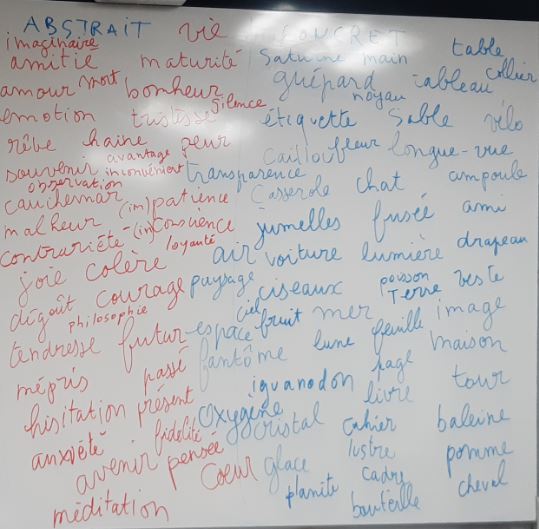 ABSTRAIT vie CONCRET
imaginaire table
amitié maturité Saturne main collier
amour mort bonheur guépard tableau
silence noyau
emotion tristesse étiquette Sable vélo
rêve haine peur caillou fleur longue-vue
avantage
souvenir inconvénient transparence ampoule
observation casserole chat
cauchemar (im)patience ami
malheur (in)conscience jumelles fusée
contrariété loyauté air voiture lumière drapeau
joie colère paysage ciseaux poisson veste
dégoût courage ciel Terre
philosophie fruit mer image
tendresse futur espace lune feuille maison
mépris passé fantôme page
iguanodon livre tour
hisitation présent oxygène
cristal cahier baleine
anxiété fidélité lustre pomme
avenir pensée coeur glace cadre cheval
méditation planète bouteille